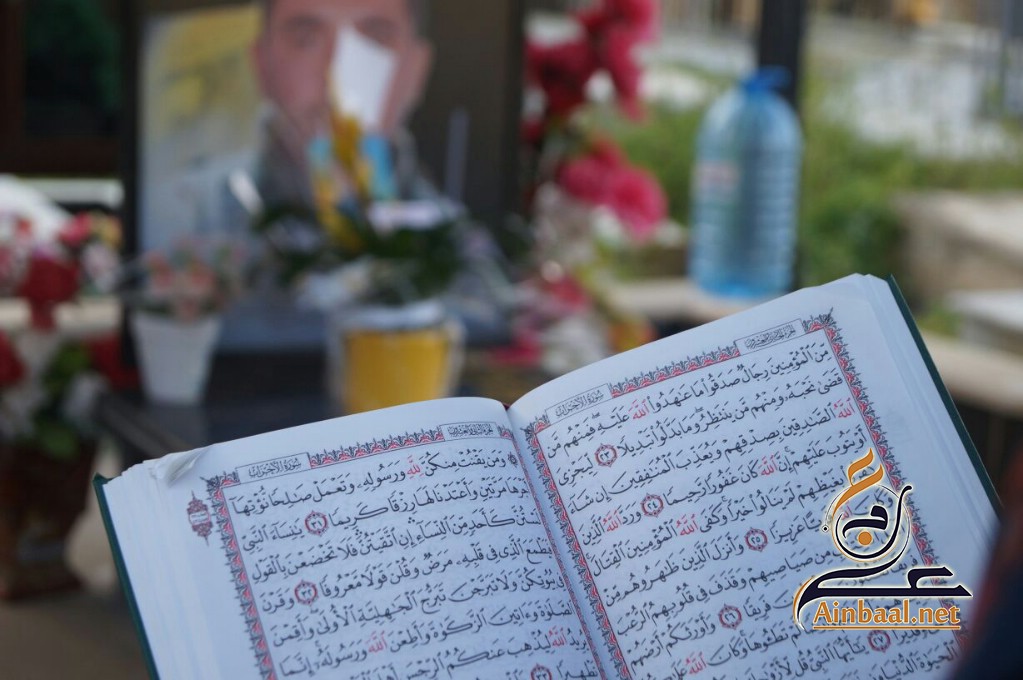 سُورَةُ الأَحْزَابِ
مِّنَ الْمُؤْمِنِينَ رِجَالٌ صَدَقُوا مَا عَاهَدُوا اللَّهَ عَلَيْهِ فَمِنْهُم مَّن
قَضَىٰ نَحْبَهُ وَمِنْهُم مَّن يَنتَظِرُ وَمَا بَدَّلُوا تَبْدِيلًا ٢٣ لِّيَجْزِيَ
اللَّهُ الصَّادِقِينَ بِصِدْقِهِمْ وَيُعَذِّبَ الْمُنَافِقِينَ إِن شَاءَ
أَوْ يَتُوبَ عَلَيْهِمْ إِنَّ اللَّهَ كَانَ غَفُورًا رَّحِيمًا ٢٤ وَرَدَّ اللَّهُ الَّذِينَ
بِغَيْظِهِمْ لَمْ يَنَالُوا خَيْرًا وَكَفَى اللَّهُ الْمُؤْمِنِينَ الْقِتَالَ
عَزِيزًا ٢٥ وَأَنزَلَ الَّذِينَ ظَاهَرُوهُم مِّنْ
صَيَاصِيهِمْ وَقَذَفَ فِي قُلُوبِهِمُ الرُّعْبَ
فَرِيقًا ٢٦ وَأَوْرَثَكُمْ أَرْضَهُمْ
تَطَئُوهَا وَكَانَ اللَّهُ عَلَىٰ
قَدِيرًا ٢٧ يَا أَيُّهَا النَّبِيُّ قُل لِّأَزْوَاجِكَ
الْحَيَاةَ الدُّنْيَا
سُورَةُ الأَحْزَابِ
وَمَن يَقْنُتْ مِنكُنَّ لِلَّهِ وَرَسُولِهِ وَتَعْمَلْ صَالِحًا نُّؤْتِهَا
أَجْرَهَا مَرَّتَيْنِ وَأَعْتَدْنَا لَهَا رِزْقًا كَرِيمًا ٣١ يَا نِسَاءَ النَّبِيِّ
لَسْتُنَّ كَأَحَدٍ مِّنَ النِّسَاءِ إِنِ اتَّقَيْتُنَّ فَلَا تَخْضَعْنَ بِالْقَوْلِ
فَيَطْمَعَ الَّذِي فِي قَلْبِهِ مَرَضٌ وَقُلْنَ قَوْلًا مَّعْرُوفًا ٣٢ وَقَرْنَ
فِي بُيُوتِكُنَّ وَلَا تَبَرَّجْنَ تَبَرُّجَ الْجَاهِلِيَّةِ الْأُولَىٰ وَأَقِمْنَ
الصَّلَاةَ وَآتِينَ الزَّكَاةَ وَأَطِعْنَ اللَّهَ وَرَسُولَهُ إِنَّمَا
يُرِيدُ اللَّهُ لِيُذْهِبَ عَنكُمُ الرِّجْسَ
تَطْهِيرًا ٣٣
Ainbaal.net